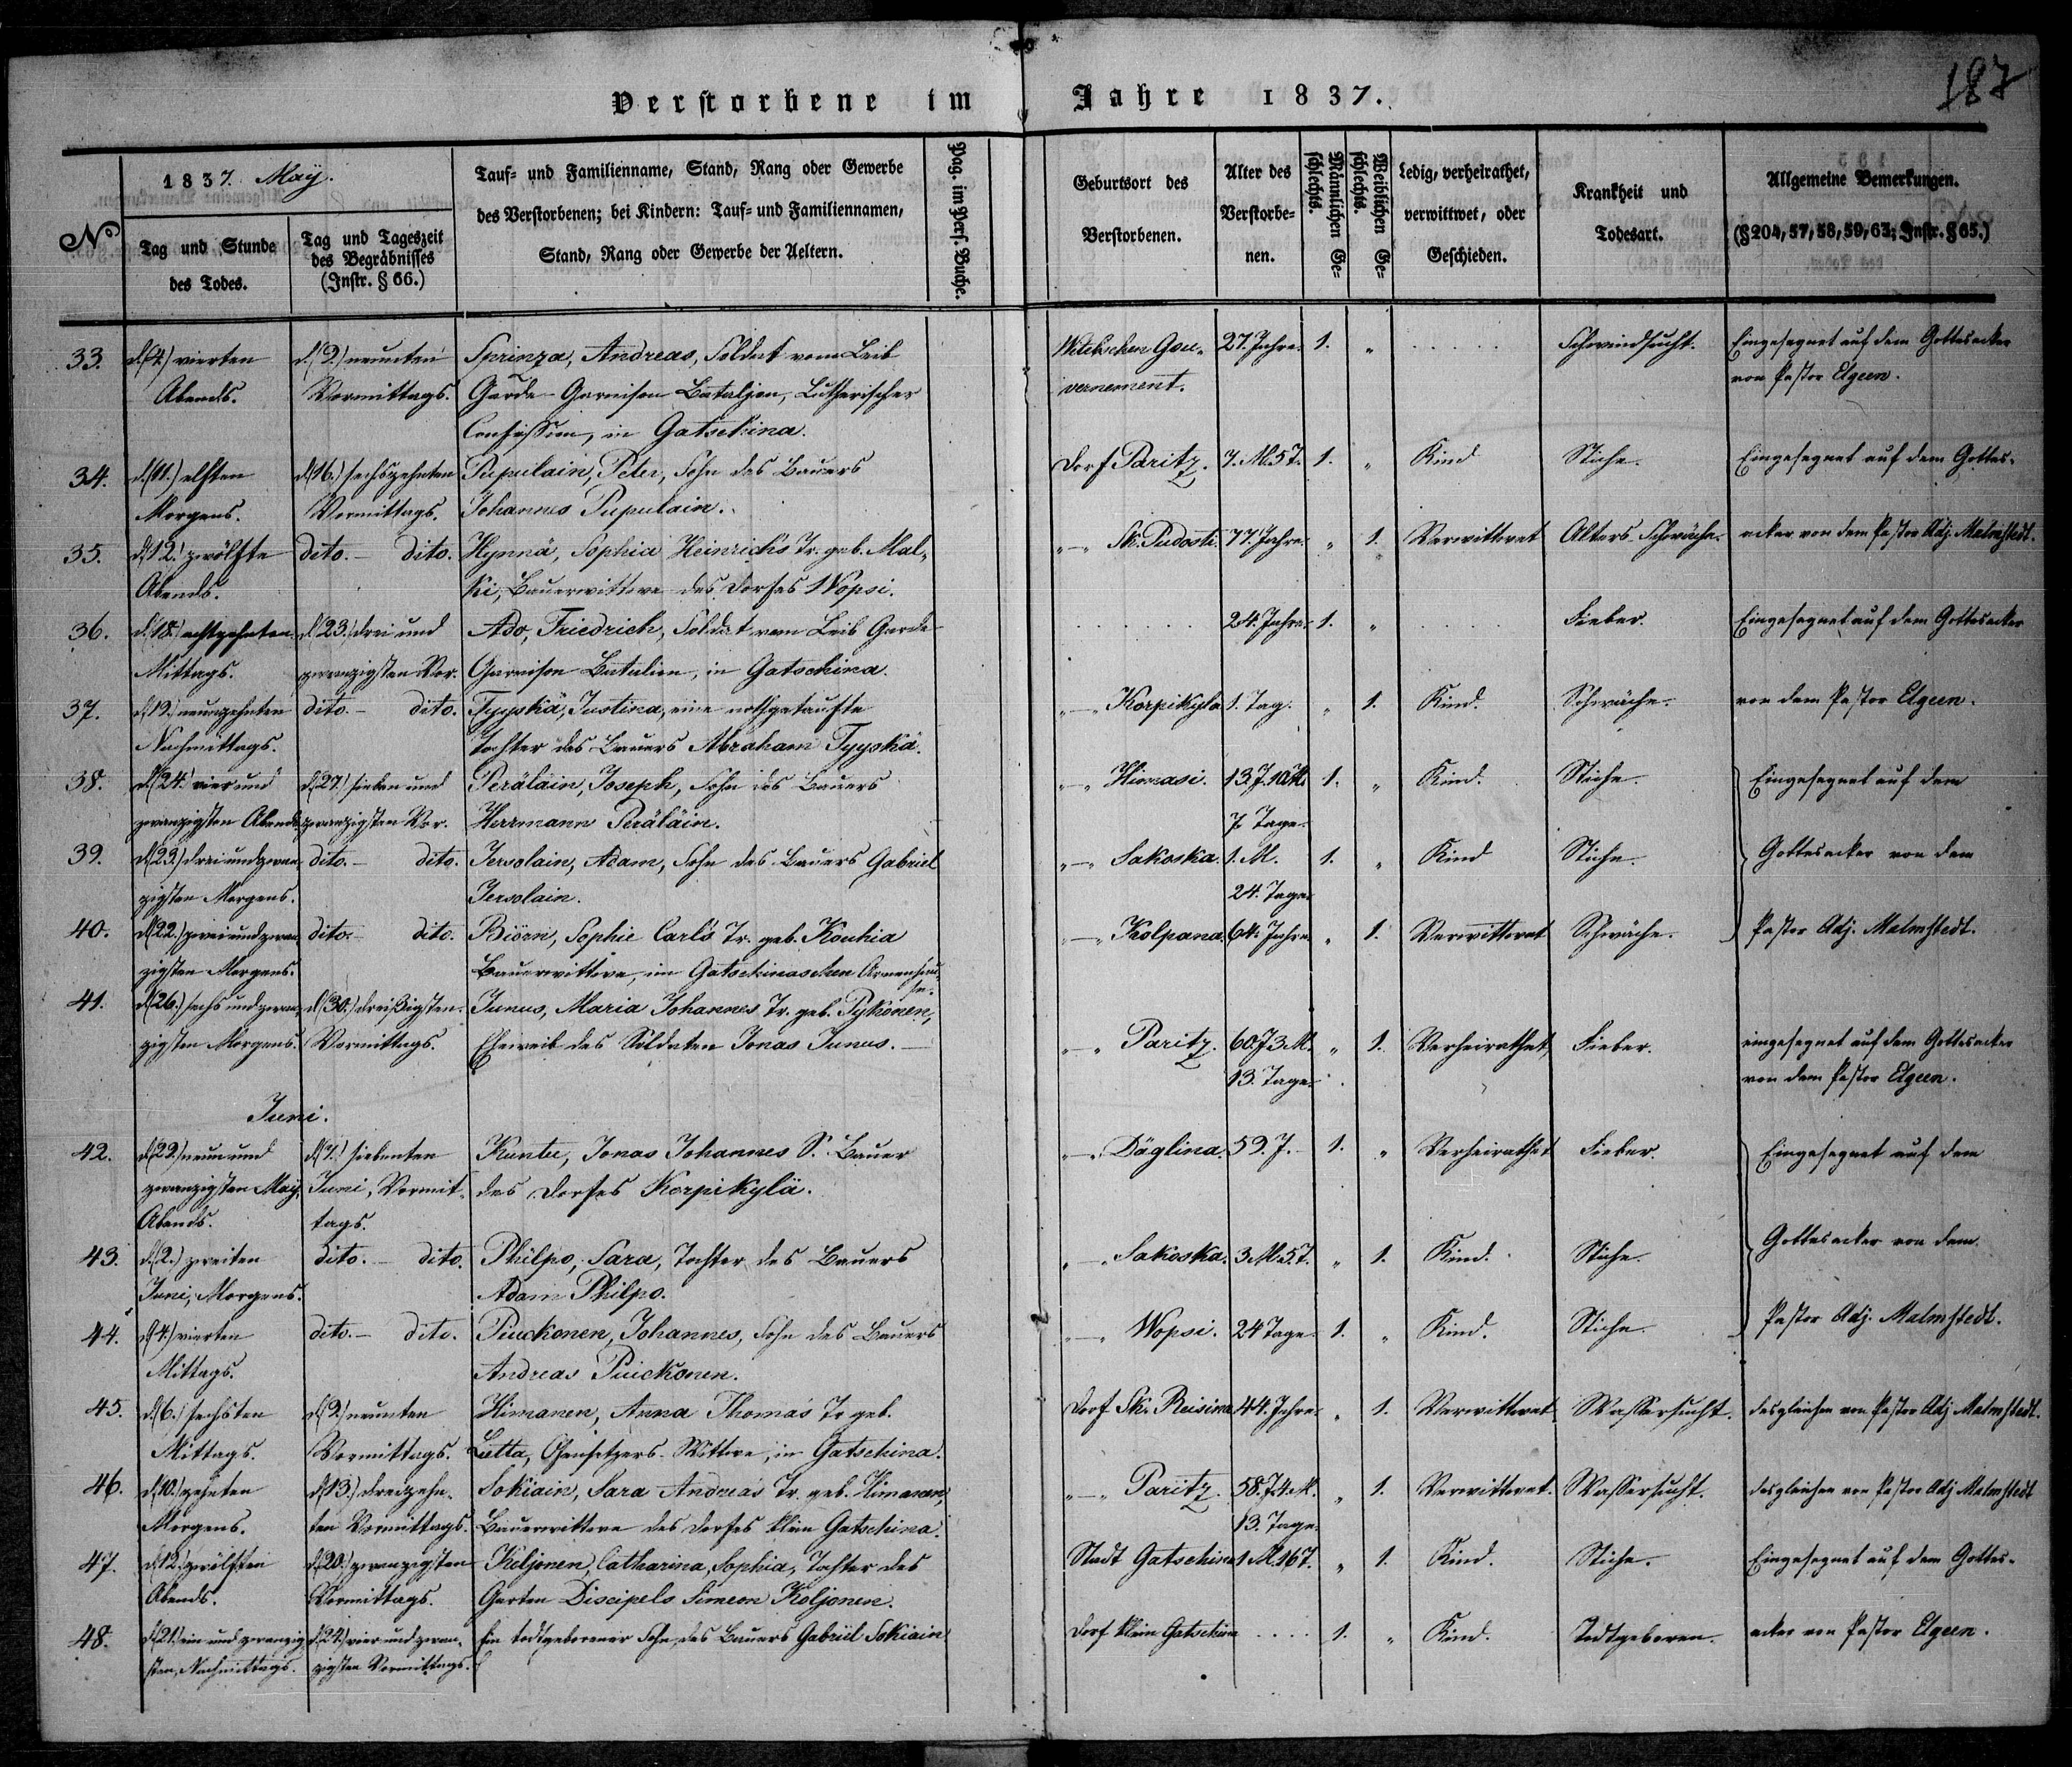 Verstorbene im Jahre 1837.
187
N°
1837. May.
Tag und Stunde des Todes.
Tag und Tageszeit des Begräbnisses (Instr. § 66.)
Tauf- und Familienname, Stand, Rang oder Gewerbe des Verstorbenen; bei Kindern: Tauf- und Familiennamen, Stand, Rang oder Gewerbe der Aeltern.
Pag. im Pers. Buche.
Geburtsort des Verstorbenen.
Alter des Verstorbenen.
Männlichen Geschlechts.
Weiblichen Geschlechts.
Ledig, verheirathet, verwittwet, oder Geschieden.
Krankheit und Todesart.
Allgemeine Bemerkungen. (§ 204, 57, 58, 59, 63; Instr. § 65.)
33. d. (4.) vierten d. (9.) neunten Sprinza, Andreas, Soldat vom Leib Witebschen Gou- 27. Jahre. 1. „ ..... Schwindsucht. Eingesegnet auf dem Gottesacker
Abends. Vormittags. Garde-Garnison Bataljon, Lutherischer vernement. von Pastor Elgeen.
Confession, in Gatschina.
34. d. (11.) elften d. (16.) sechszehnten Pupulain, Peter, Sohn des Bauers Dorf Paritz. 7. M. 5 T. 1. „ Kind Stiche. Eingesegnet auf dem Gottes-
Morgens. Vormittags. Johannes Pupulain.
35. d. (12.) zwölften dito. — dito. Hynnä, Sophia Heinrich's Tr. geb. Mal- „—„ Sk. Pudosti. 77 Jahre. „ 1. Verwittwet Alters Schwäche. acker von dem Pastor Adj. Malmstedt.
Abends. ki, Bauerwittwe des Dorfes Wopsi.
36. d. (18.) achtzehnten d. (23.) drei und Ado, Friedrich, Soldat vom Leib Garde ..... 24. Jahre. 1. „ ..... Fieber. Eingesegnet auf dem Gottesacker
Mittags. zwanzigsten Vor. Garnison Batalion, in Gatschina.
37. d. (19.) neunzehnten dito. — dito. Tyyskä, Justina, eine nothgetaufte „—„ Korpikyla 1. Tag. „ 1. Kind. Schwäche. von dem Pastor Elgeen.
Nachmittags. Tochter des Bauers Abraham Tyyskä.
38. d. (24.) vier und d. (27.) sieben und Peräläin, Joseph, Sohn des Bauers „—„ Himasi. 13. J. 10 M. 1. „ Kind. Stiche. Eingesegnet auf dem
zwanzigsten Abends. zwanzigsten Vor. Herrmann Peräläin. 7. Tage.
39. d. (23.) drei und zwan- dito. — dito. Jersolain, Adam, Sohn des Bauers Gabriel „—„ Sakoska. 1. M. 1. „ Kind Stiche. Gottesacker von dem
zigsten Morgens. Jersolain. 24. Tage.
40. d. (22.) zwei und zwan- dito. — dito. Biörn, Sophie Carl's Tr. geb. Kouhia „—„ Kolpana. 64. Jahre. „ 1. Verwittwet Schwäche. Pastor Adj. Malmstedt.
zigsten Morgens. Bauerwittwe, im Gatschinaschen Armenhau-
se.
41. d. (26.) sechs und zwan- d. (30.) dreißigsten. Junus, Maria Johannes Tr. geb. Pykönen, „—„ Paritz. 60. J 3 M. „ 1. Verheirathet Fieber. eingesegnet auf dem Gottesacker
zigsten Morgens. Vormittags. Eheweib des Soldaten Jonas Junus. — 13. Tage. von dem Pastor Elgeen.
Juni.
42. d. (29.) neun und d. (7.) siebenten Kuntu, Jonas Johannes S. Bauer „—„ Däglina. 59. J. 1. „ Verheirathet Fieber. Eingesegnet auf dem
zwanzigsten May, Juni, Vormit- des Dorfes Korpikylä.
Abends. tags.
43. d. (2.) zweiten dito. — dito. Philpo, Sara, Tochter des Bauers „—„ Sakoska. 3 M. 5 T. „ 1. Kind. Stiche. Gottesacker von dem
Juni, Morgens. Adam Philpo.
44. d. (4.) vierten dito. — dito. Puickonen, Johannes, Sohn des Bauers „—„ Wopsi. 24 Tage. 1. „ Kind. Stiche. Pastor Adj. Malmstedt.
Mittags. Andreas Puickonen.
45. d. (6.) sechsten d. (9.) neunten Himanen, Anna Thomas Tr. geb. Dorf Sk. Reisina 44. Jahre. „ 1. Verwittwet Wassersucht. desgleichen von Pastor Adj Malmstedt.
Mittags. Vormittags. Lutta, Ofensetzers-Wittwe, in Gatschina.
46. d. (10.) zehnten d. (13.) dreizehn- Sokiain, Sara Andreas Tr. geb. Himanen, „—„ Paritz. 58. J. 4. M. „ 1. Verwittwet. Wassersucht. desgleichen von Pastor Adj Malmstedt
Morgens. ten Vormittags. Bauerwittwe des Dorfes klein Gatschina. 13. Tage.
47. d. (12.) zwölften d. (20.) zwanzigsten Koljonen, Catharina, Sophia, Tochter des Stadt Gatschina 1 M. 16 T. „ 1. Kind. Stiche. Eingesegnet auf dem Gottes-
Abends. Vormittags. Garten Discipels Simeon Koljonen.
48. d. (21.) ein und zwanzig- d. (24.) vier und zwan- Ein todtgeborener Sohn des Bauers Gabriel Sokiain Dorf klein Gatschina .... 1. „ Kind. Todtgeboren. acker von Pastor Elgeen.
sten, Nachmittags. zigsten Vormittags.